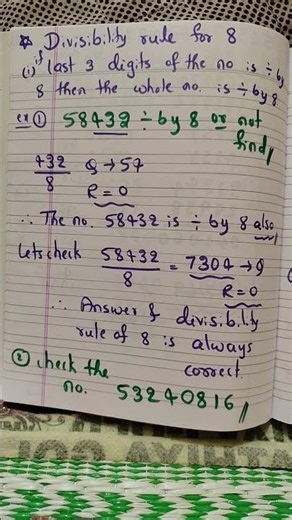 ☆ Divisibility rule for 8
(i) if last 3 digits of the no is ÷ by
8 then the whole no. is ÷ by 8
ex ① 58432 ÷ by 8 or not
find
432/8 Q → 54
R = 0
∴ The no. 58432 is ÷ by 8 also
Lets check 58432/8 = 7304 → Q
R = 0
∴ Answer & divisibility
rule of 8 is always
correct.
② check the
no. 53240816